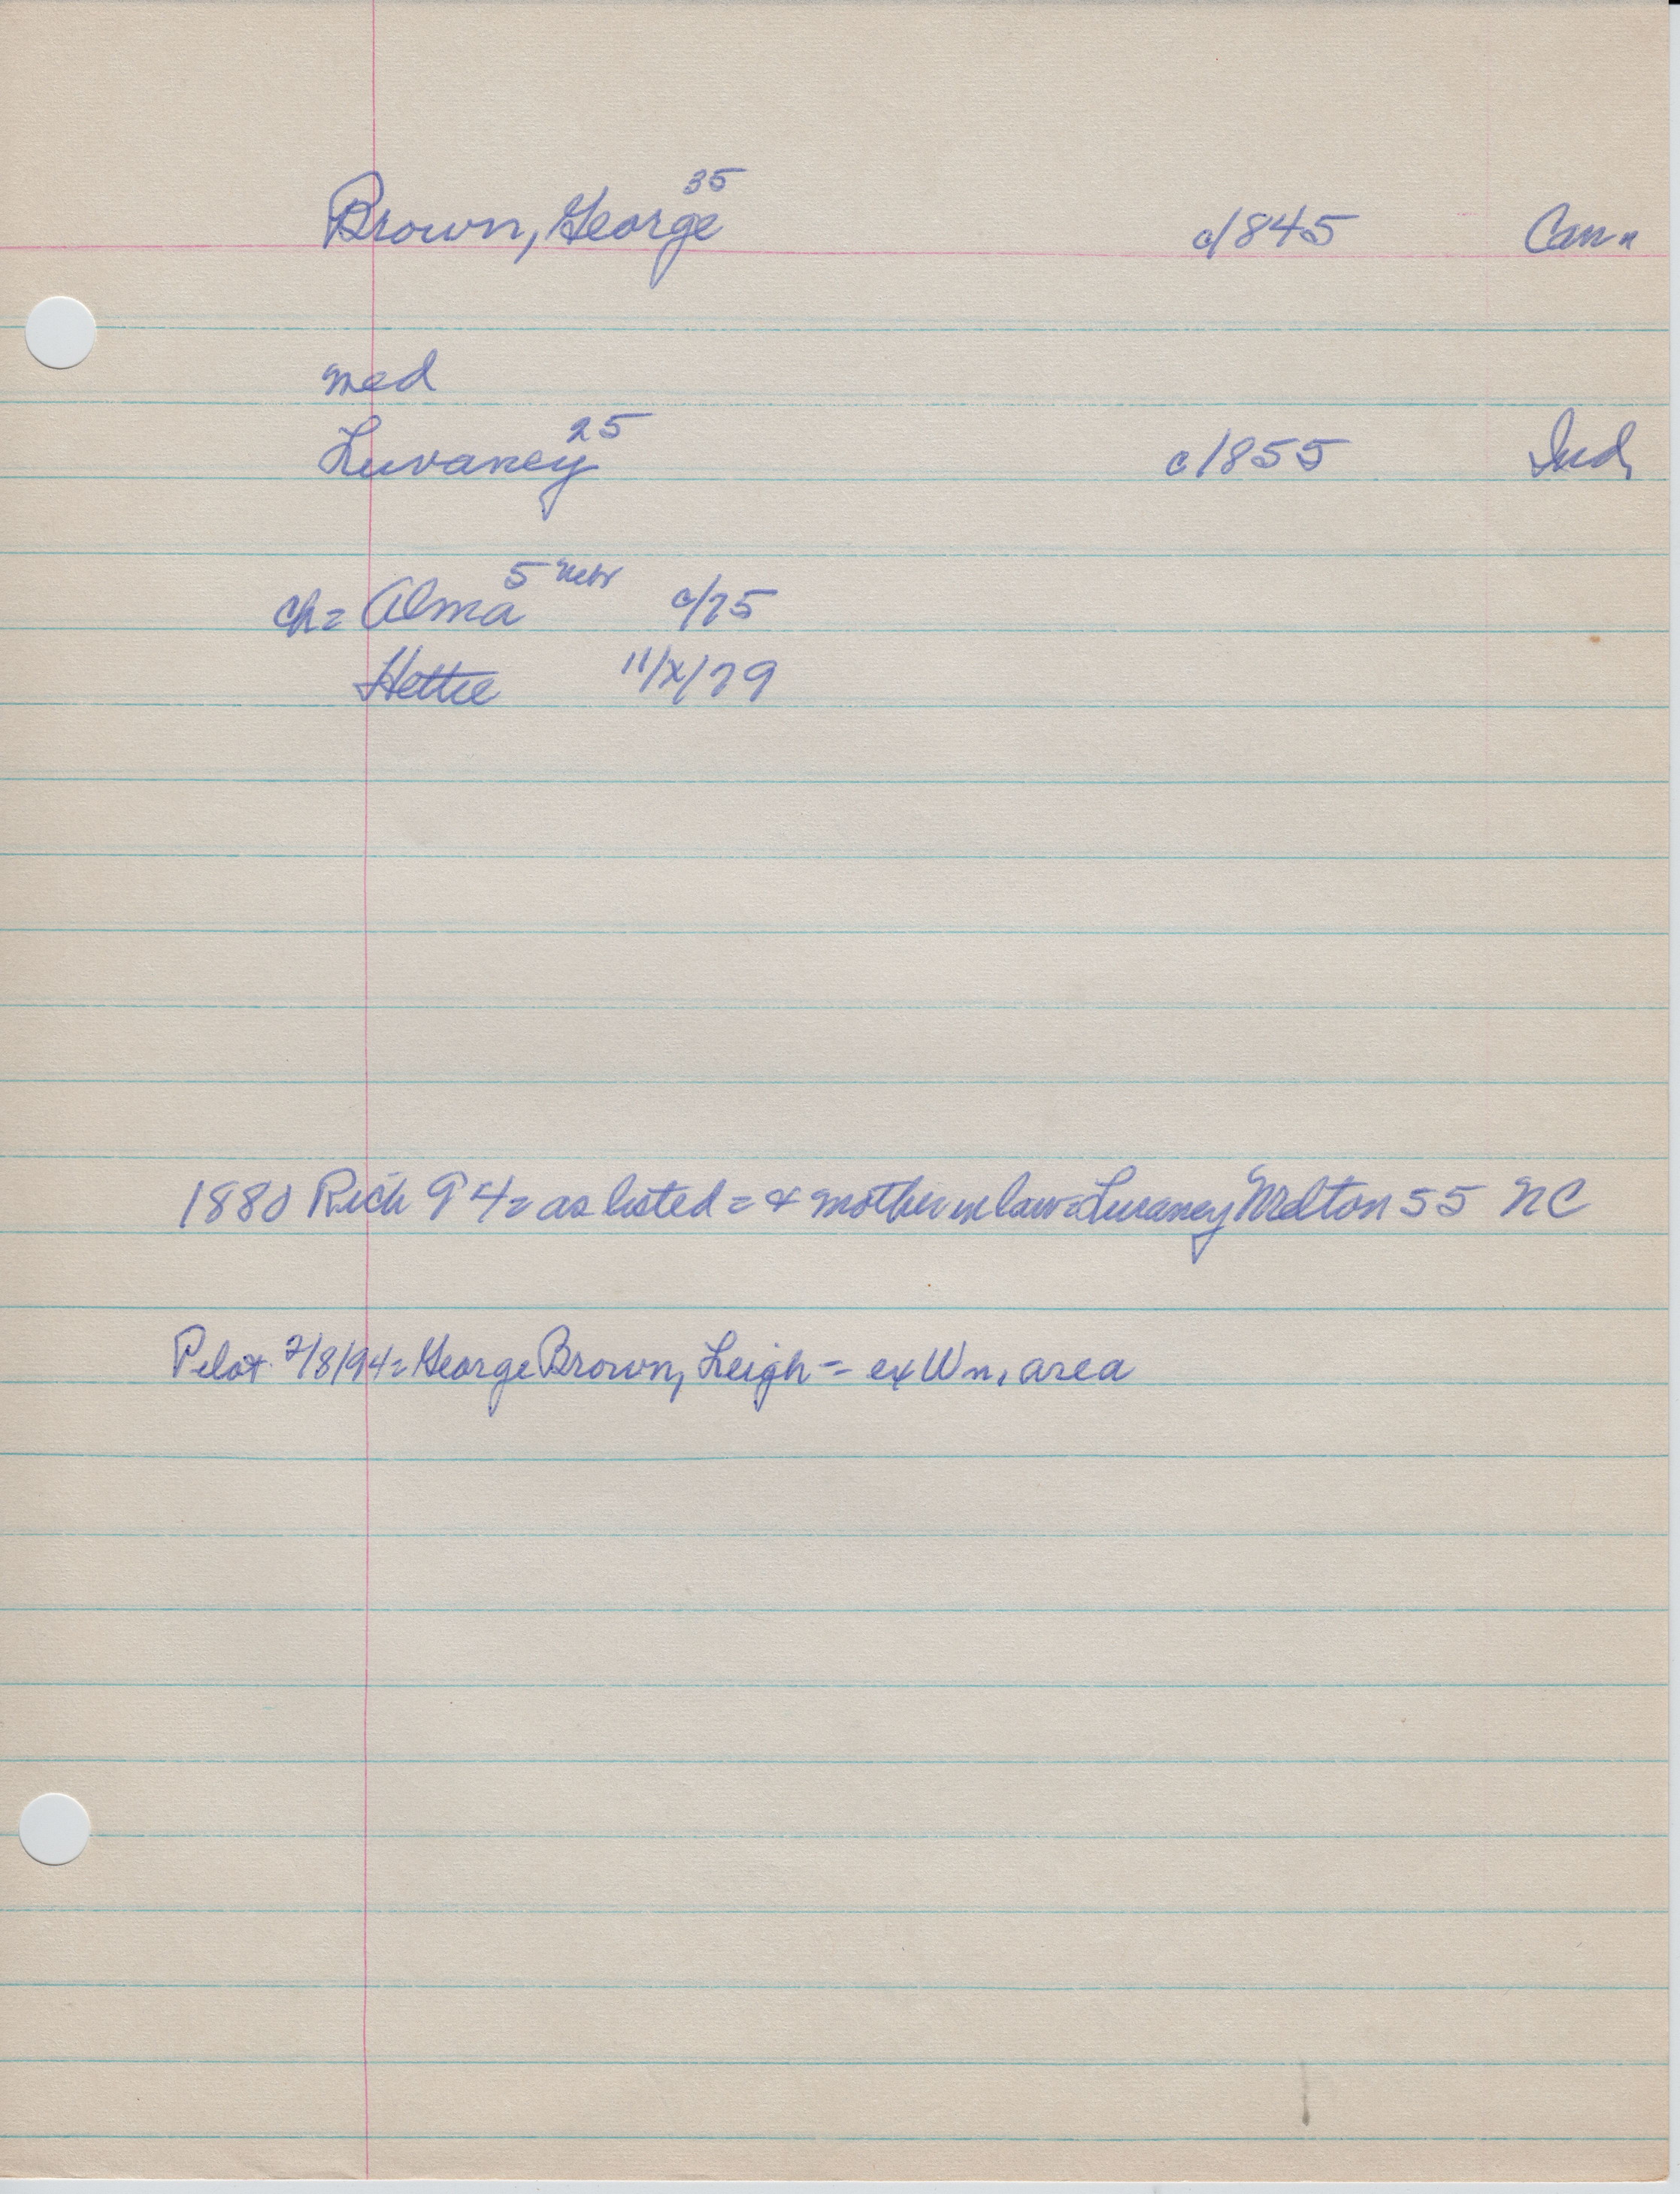 Brown, George 35 c/1845 Can.
med
Luvaney 25 c/1855 Ind,
ch= Alma 5 Nebr c/75
Hettie 11/x/79
1880 Rich 94= as listed = & mother in law=Luvaney Melton 55 NC
Pelot 2/8/94= George Brown, Leigh = ex Wn. area